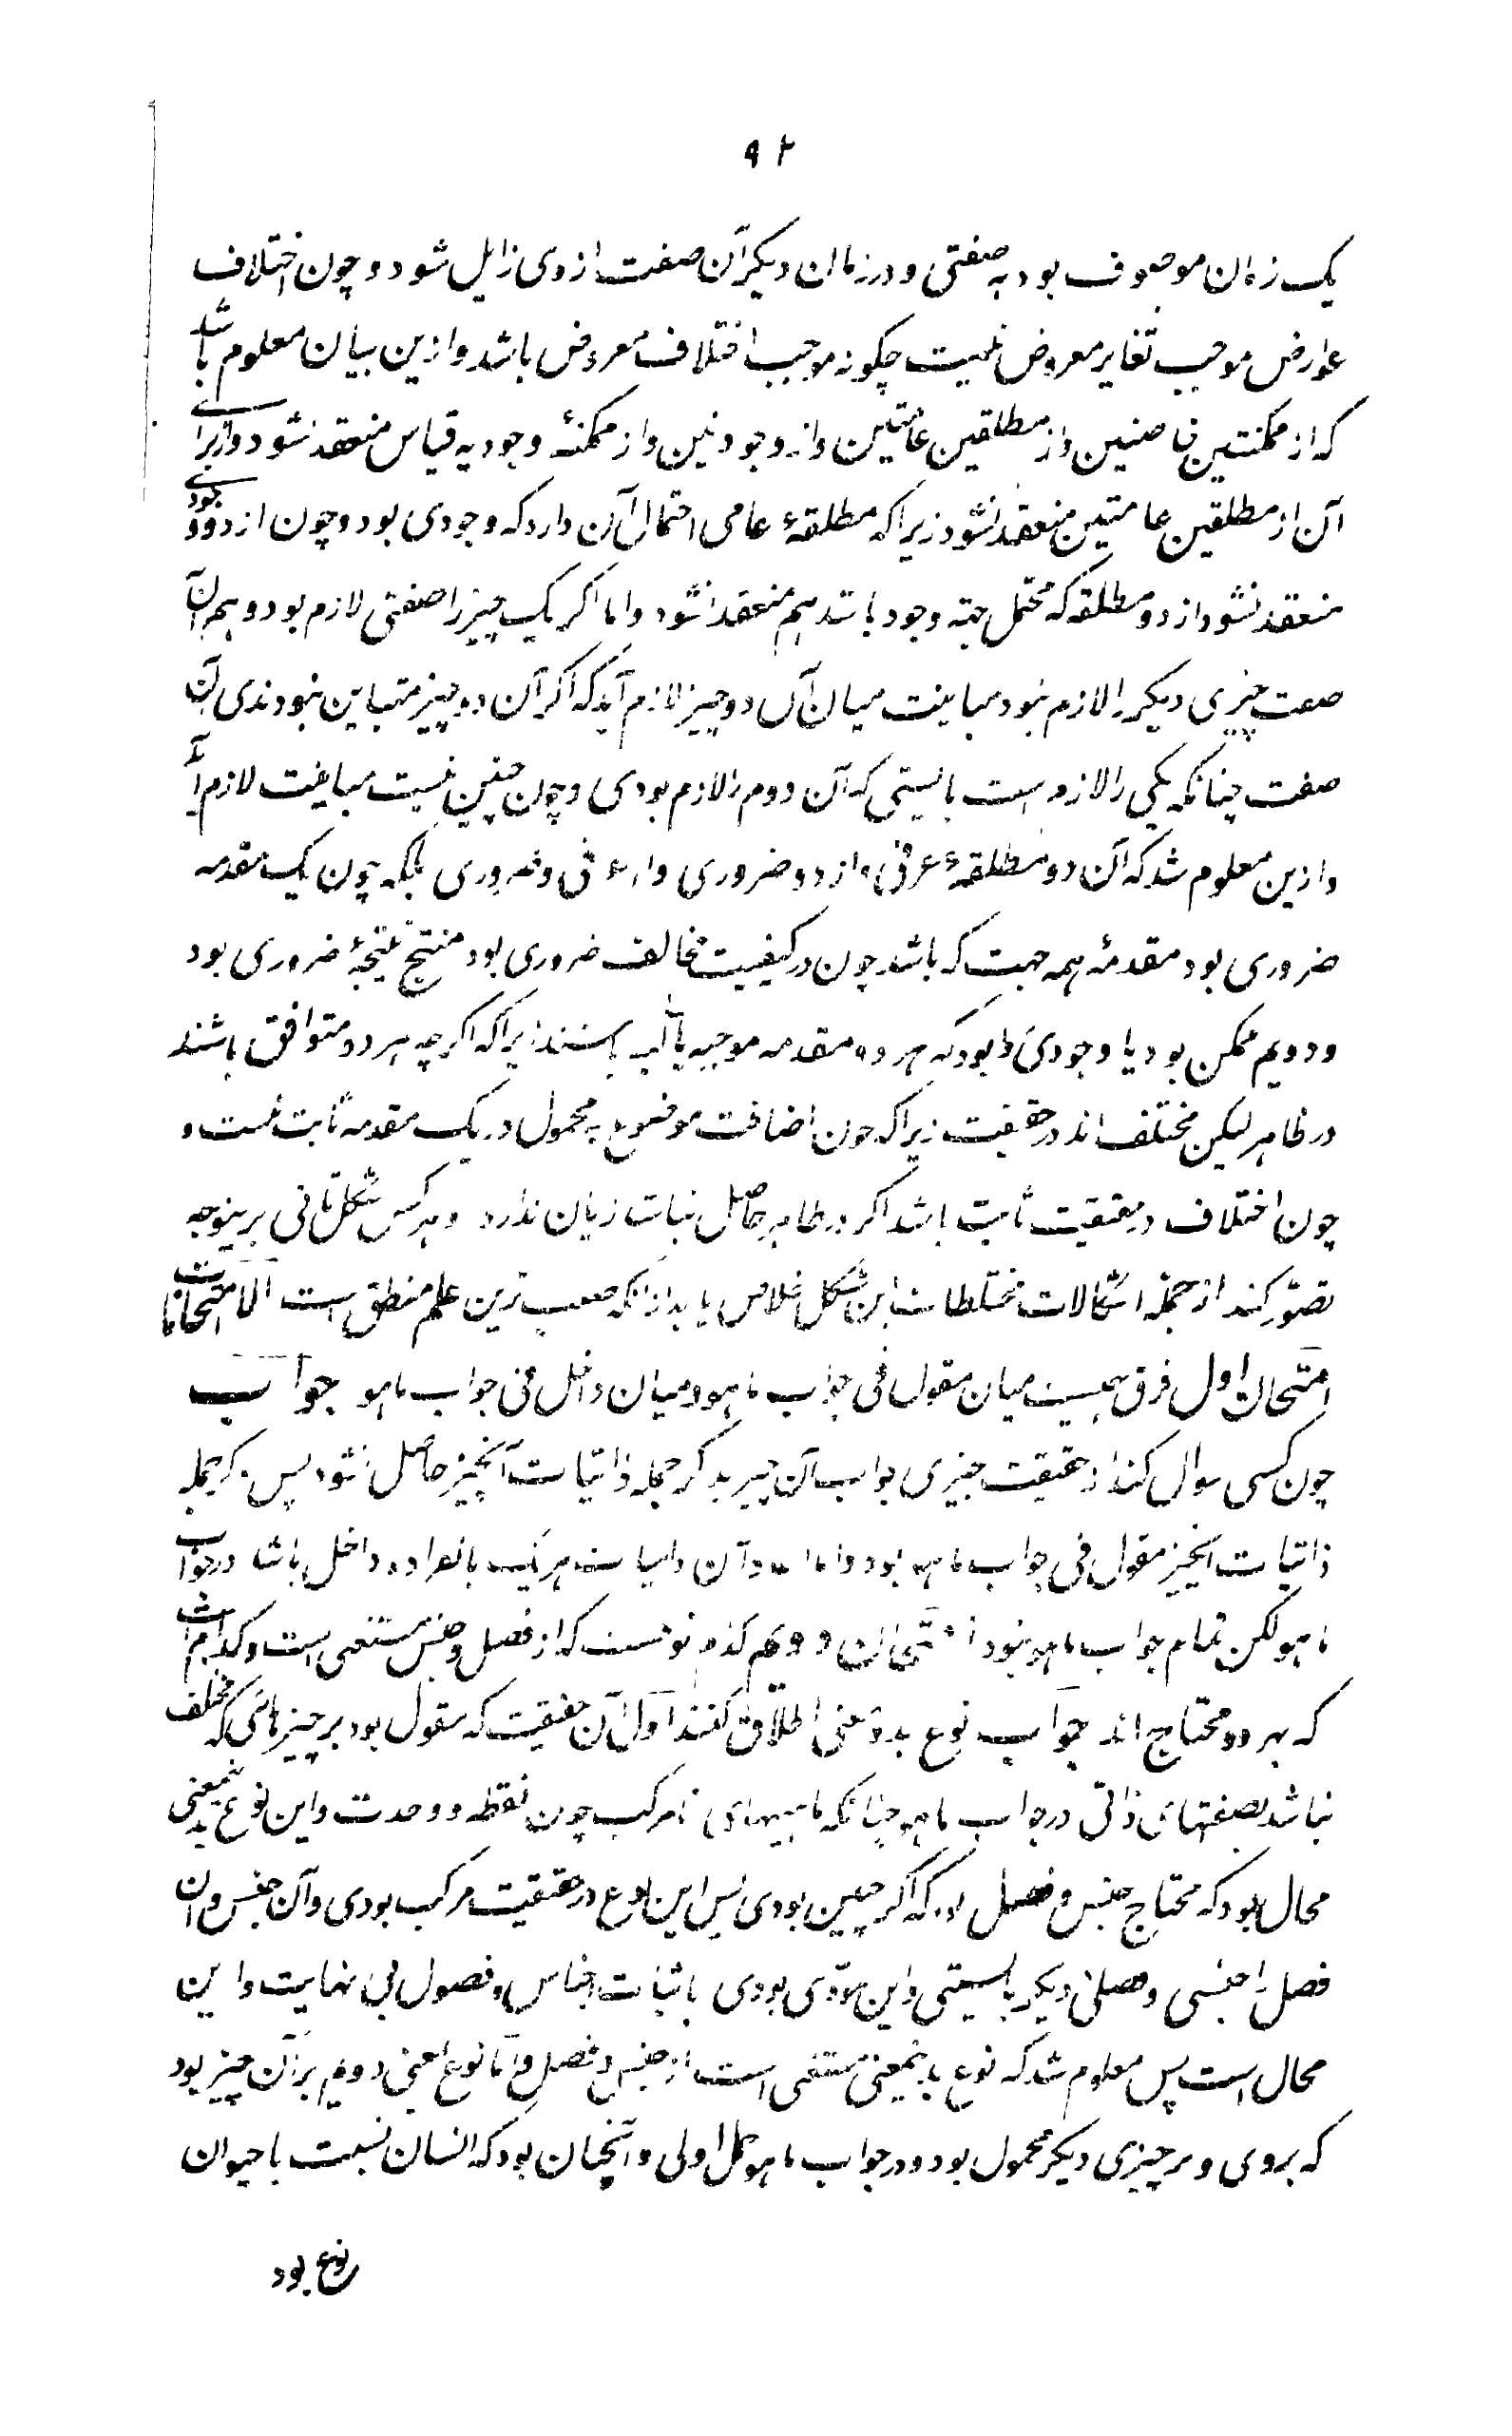 ۹۲
یک زمان موصوف بود به صفتی و در زمان دیگر آن صفت از وی زایل شود و چون اختلاف
عوارض موجب تغایر معروض نیست چگونه موجب اختلاف معروض باشد و ازین بیان معلوم باشد
که از ممکنتین خاصتین و از مطلقتین عامتین و از وجودتین و از ممکنهٔ وجودیه قیاس منعقد نشود و از برای
آن از مطلقین عامتین منعقد نشود زیرا که مطلقهٔ عامی احتمال آن دارد که وجودی بود و چون از دو وجودی
منعقد نشود از دو مطلقه که محتمل جهته وجود باشد هم منعقد نشود و اما اگر یک چیز را صفتی لازم بود و هم آن
صفت چیزی دیگر را لازم نبود مباینت میان آن دو چیز لازم آید که اگر آن دو چیز متباین نبودندی آن
صفت چنانکه یکی را لازم است بایستی که آن دوم را لازم بودی و چون چنین نیست مباینت لازم آید
و ازین معلوم شد که آن دو مطلقهٔ عرفی و از دو ضروری و از عرفی و ضروری بلکه چون یک مقدمه
ضروری بود مقدمهٔ همه جهت که باشد چون در کیفیت مخالف ضروری بود منتج نتیجهٔ ضروری بود
و دویم ممکن بود یا وجودی بود که هر دو مقدمه موجبه یا سالبه باشند زیرا که اگرچه هر دو متوافق باشند
در ظاهر لیکن مختلف‌اند در حقیقت زیرا که چون اضافت موضوع به محمول در یک مقدمه ثابت است و
چون اختلاف در حقیقت ثابت باشد اگر در ظاهر حاصل نباشد زیان ندارد و هر کس شکل ثانی برینوجه
تصور کند از جمله اشکالات مختلطات این شکل خلاص یابد از آنکه صعب‌ترین علم منطق است الامتحانات
امتحان اول فرق چیست میان مقول فی جواب ماهو و میان داخل فی جواب ماهو جواب
چون کسی سوال کند از حقیقت چیزی جواب آن چیز بذکر جمله ذاتیات آنچیز حاصل شود پس ذکر جمله
ذاتیات آنچیز مقول فی جواب ماهو بود و اما آن ذاتیات هر یک بانفراده داخل باشد در جواب
ماهو لکن تمام جواب ماهو نبود امتحان دویم کدام نوعست که از فصل و جنس مستغنی است و کدام است
که بهر دو محتاج‌اند جواب نوع بدو معنی اطلاق کنند اول آن حقیقت که مقول بود بر چیزهائی که مختلف
نباشد بصفتهای ذاتی در جواب ماهو چنانکه ماهیتهای نامرکب چون نقطه و وحدت و این نوع بدینمعنی
محال بود که محتاج جنس و فصل بود که اگر چنین بودی پس این نوع در حقیقت مرکب بودی و آن جنس و آن
فصل را جنسی و فصلی دیگر بایستی و این مؤدی بودی باثبات اجناس و فصول بی نهایت و این
محال است پس معلوم شد که نوع بدینمعنی مستغنی است از جنس و فصل و اما نوع بمعنی دویم بر آن چیز بود
که بروی و بر چیزی دیگر محمول بود و در جواب ماهو حمل اولی و آنچنان بود که انسان نسبت با حیوان
نوع بود